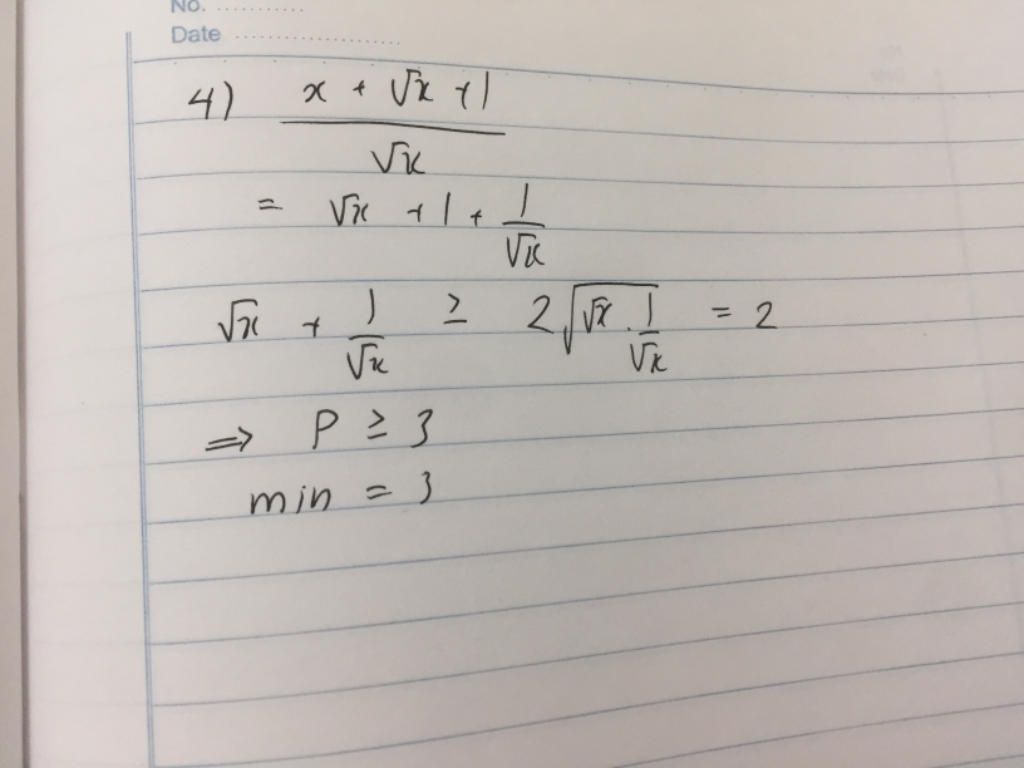 No. ............
Date ......................
4) x + √x + 1
√x
= √x + 1 + 1/√x
√x + 1/√x ≥ 2√(√x . 1/√x) = 2
⇒ P ≥ 3
min = 3